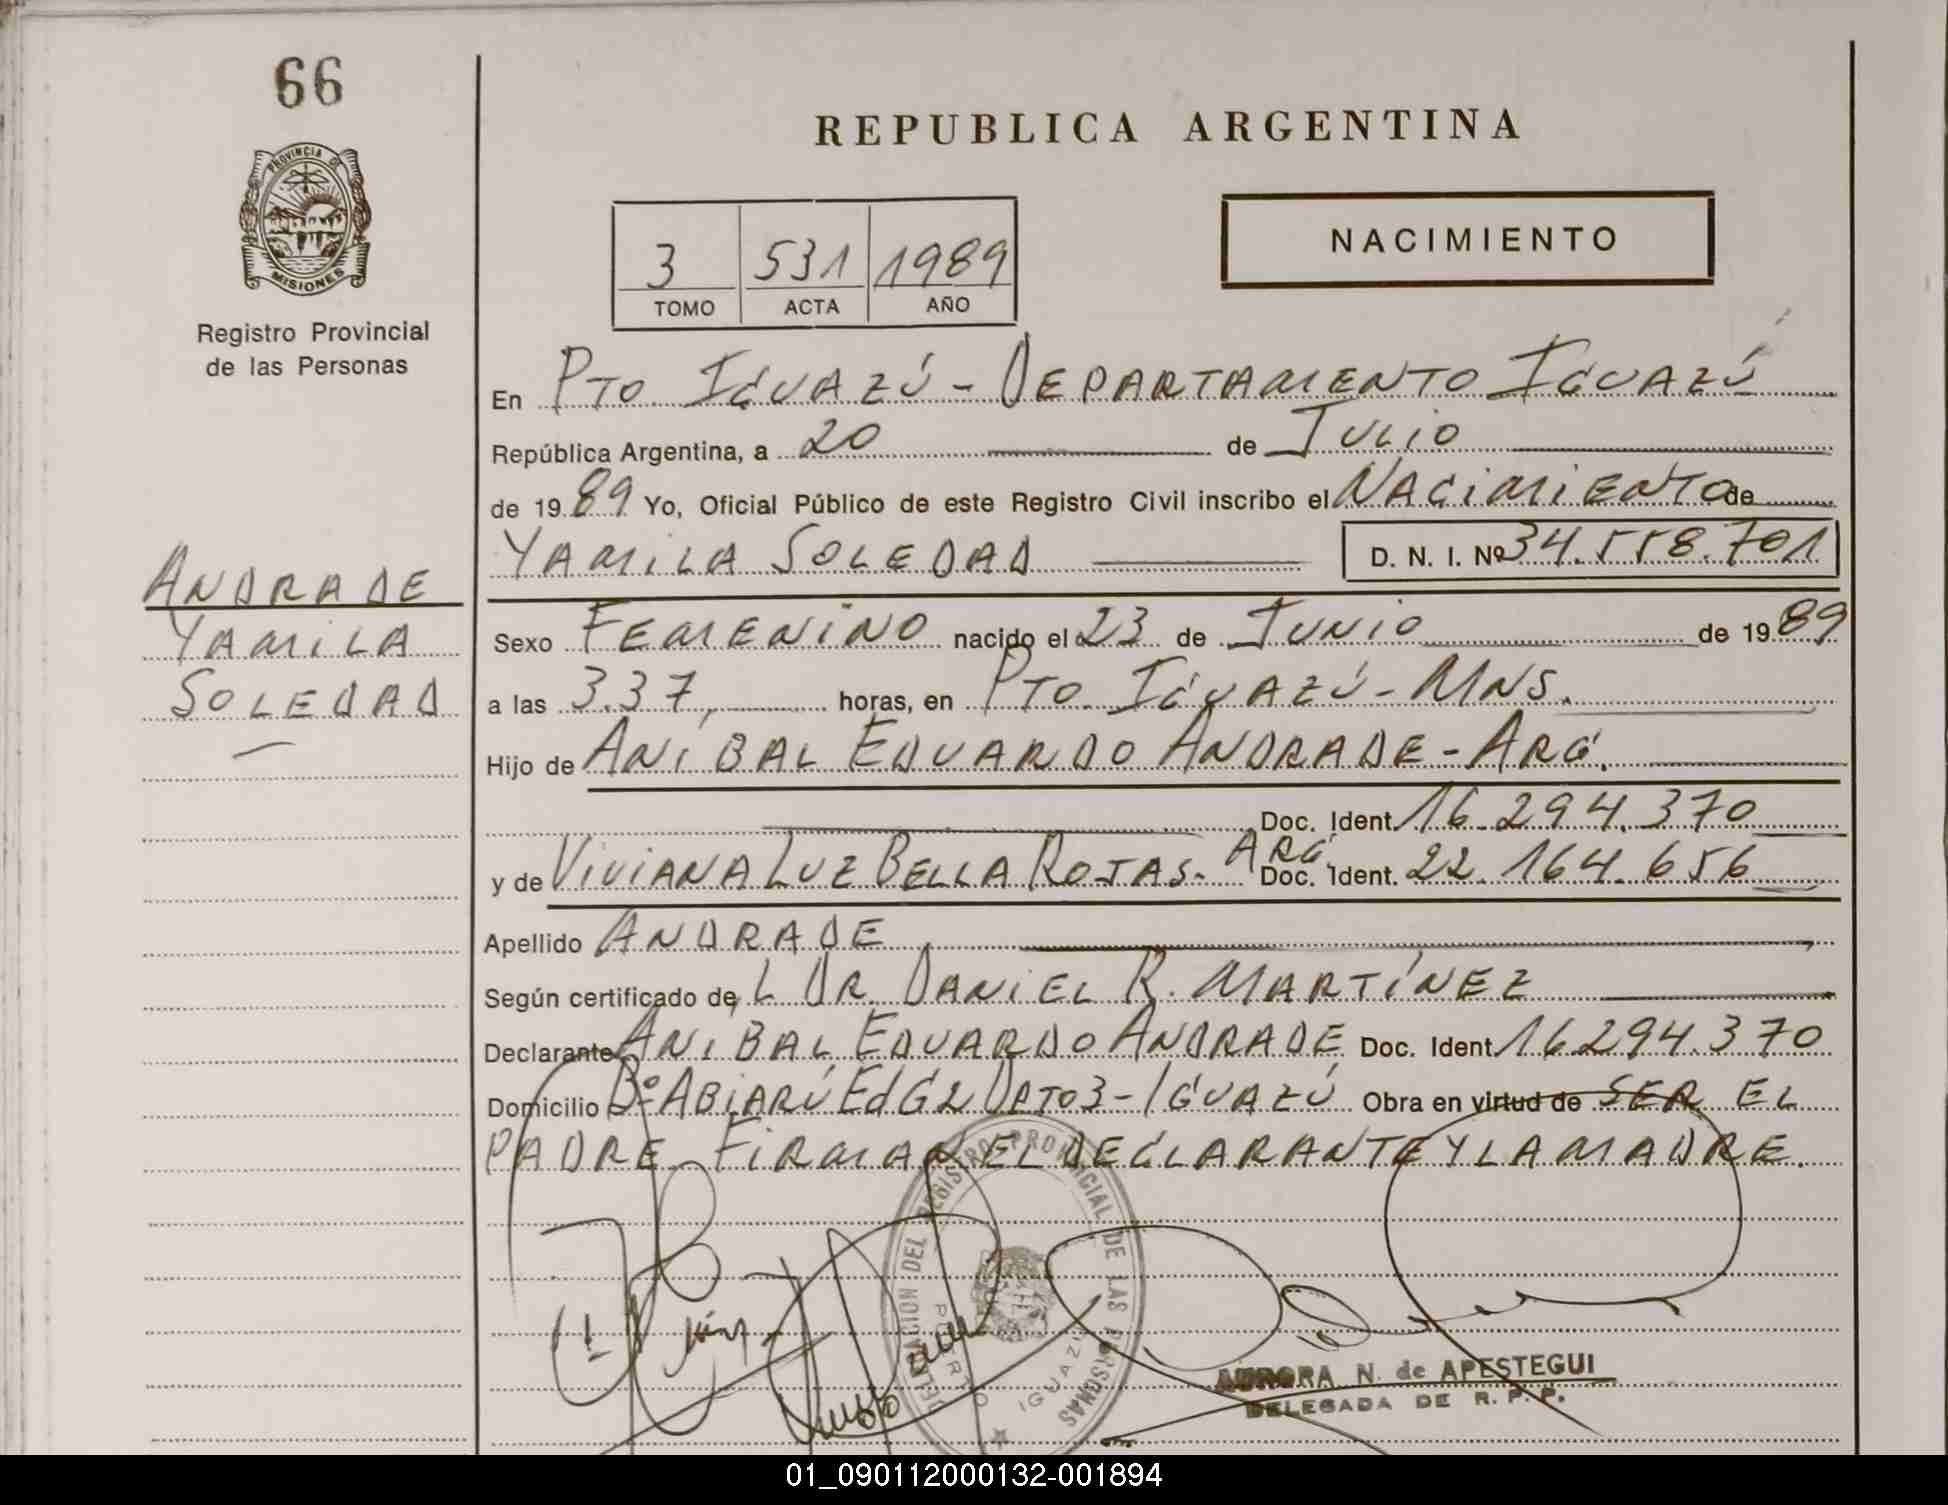 66
REPUBLICA ARGENTINA
PROVINCIA DE
MISIONES
Registro Provincial
de las Personas
3 531 1989
TOMO ACTA AÑO
NACIMIENTO
En PTO IGUAZÚ - DEPARTAMENTO IGUAZÚ
República Argentina, a 20 de JULIO
de 1989 Yo, Oficial Público de este Registro Civil inscribo el NACIMIENTO de
YAMILA SOLEDAD D. N. I. Nº 34.558.701
ANDRADE
YAMILA
SOLEDAD
Sexo FEMENINO nacido el 23 de JUNIO de 1989
a las 3.37, horas, en PTO. IGUAZÚ - MNS.
Hijo de ANÍBAL EDUARDO ANDRADE - ARG.
Doc. Ident. 16.294.370
y de VIVIANA LUZ BELLA ROJAS - ARG. Doc. Ident. 22.164.656
Apellido ANDRADE
Según certificado de L DR. DANIEL R. MARTÍNEZ
Declarante ANÍBAL EDUARDO ANDRADE Doc. Ident. 16294.370
Domicilio Bº ABIARÚ Ed G2 DPTO 3 - IGUAZÚ Obra en virtud de SER EL
PADRE FIRMAN EL DECLARANTE Y LA MADRE.
DELEGACION DEL REGISTRO PROVINCIAL DE LAS PERSONAS
PUERTO IGUAZU
AURORA N. de APESTEGUI
DELEGADA DE R. P. P.
01_090112000132-001894